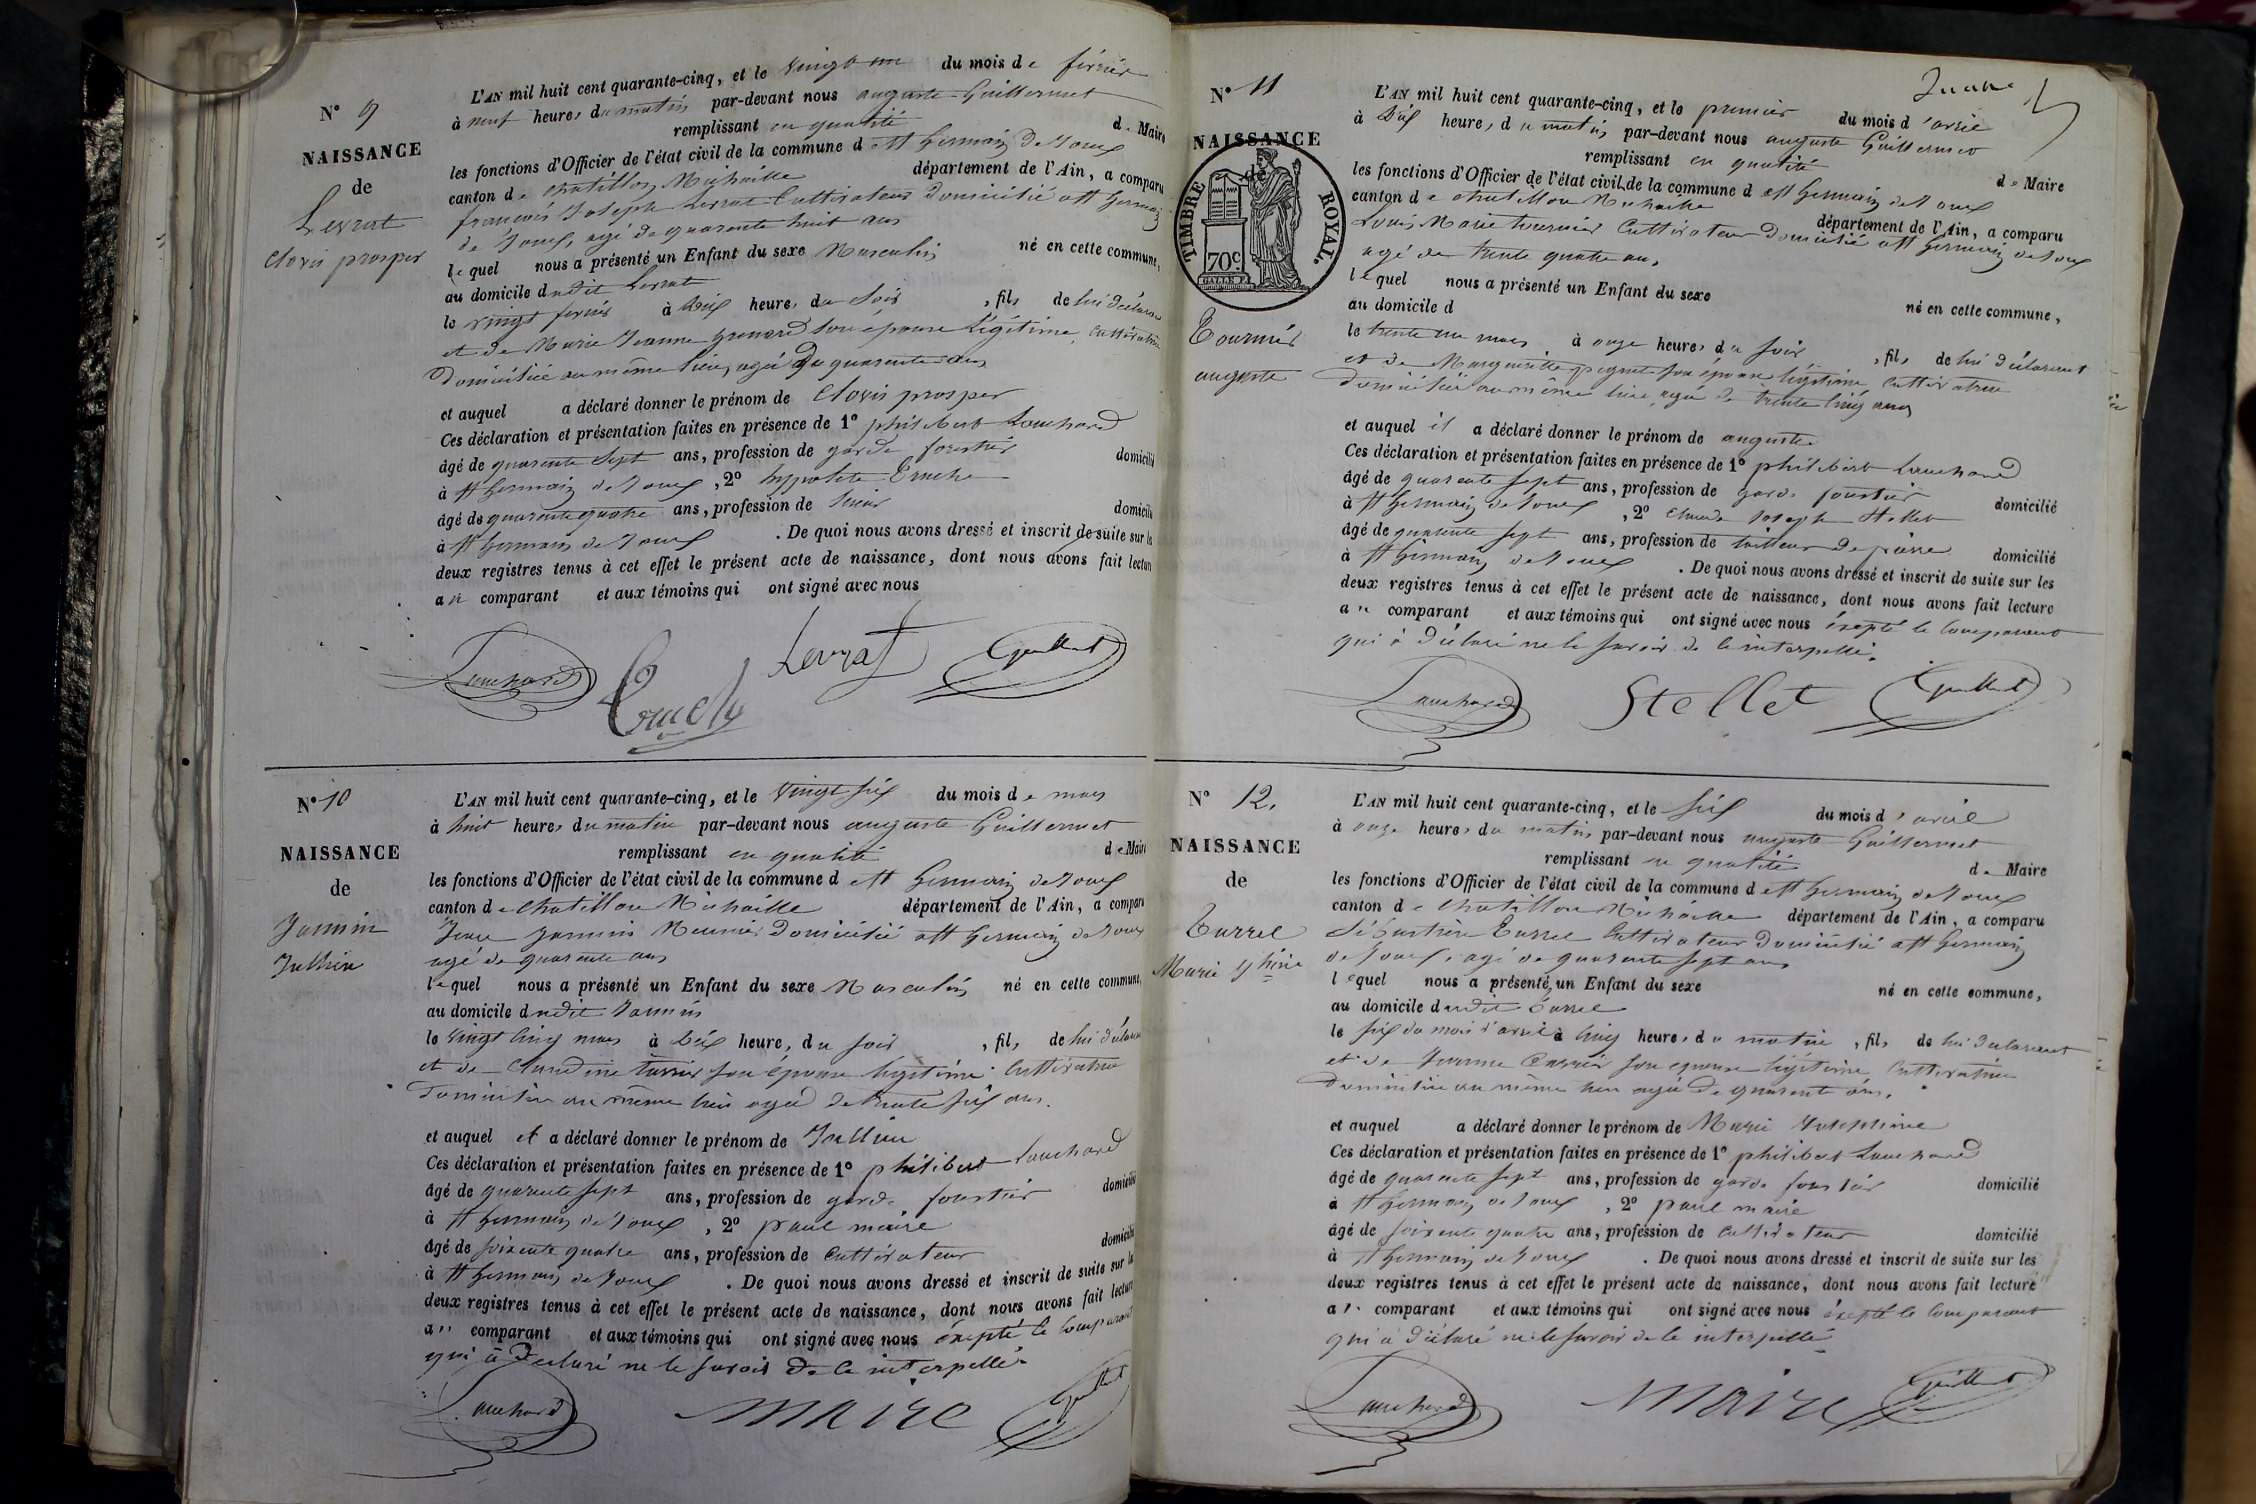 N° 9
NAISSANCE
de
Levrat
Clovis prosper
L'AN mil huit cent quarante-cinq, et le vingt un du mois de février
à neuf heures du matin par-devant nous auguste Guillermet
remplissant en qualité de Maire
les fonctions d'Officier de l'état civil de la commune de St Germain de Joux
canton de Chatillon Michaille département de l'Ain, a comparu
françois Joseph Levrat Cultivateur domicilié a St Germain
de Joux, agé de quarente huit ans
lequel nous a présenté un Enfant du sexe Masculin né en cette commune,
au domicile dudit Levrat
le vingt fevrier à dix heures du soir, fils de lui déclarant
et de Marie Jeanne son épouse légitime, Cultivatrice
domiciliée au même lieu, agée de quarente ans
et auquel a déclaré donner le prénom de Clovis prosper
Ces déclaration et présentation faites en présence de 1° philibert Louchard
âgé de quarente sept ans, profession de garde forestier domicilié
à St Germain de Joux, 2° hyppolite
âgé de quarente quatre ans, profession de domicilié
à St Germain de Joux. De quoi nous avons dressé et inscrit de suite sur les
deux registres tenus à cet effet le présent acte de naissance, dont nous avons fait lecture
au comparant et aux témoins qui ont signé avec nous
Louchard Levrat Guillermet
N° 10
NAISSANCE
de
Jasmin
Jullien
L'AN mil huit cent quarante-cinq, et le vingt six du mois de mars
à huit heures du matin par-devant nous auguste Guillermet
remplissant en qualité de Maire
les fonctions d'Officier de l'état civil de la commune de St Germain de Joux
canton de Chatillon Michaille département de l'Ain, a comparu
Jasmin domicilié a St Germain de Joux
agé de quarente ans
lequel nous a présenté un Enfant du sexe Masculin né en cette commune,
au domicile dudit Jasmin
le vingt cinq mars à dix heures du soir, fils de lui déclarant
et de Claudine son épouse légitime Cultivatrice
domiciliée au même lieu agée de trente six ans.
et auquel il a déclaré donner le prénom de Jullien
Ces déclaration et présentation faites en présence de 1° philibert Louchard
âgé de quarente sept ans, profession de garde forestier domicilié
à St Germain de Joux, 2° paul maire
âgé de soixente quatre ans, profession de Cultivateur domicilié
à St Germain de Joux. De quoi nous avons dressé et inscrit de suite sur les
deux registres tenus à cet effet le présent acte de naissance, dont nous avons fait lecture
au comparant et aux témoins qui ont signé avec nous éxepté le Comparant
qui à déclaré ne le savoir de ce interpellé
Louchard maire Guillermet
N° 11
NAISSANCE
de
TIMBRE ROYAL.
70c
Tournier
auguste
L'AN mil huit cent quarante-cinq, et le premier du mois d'avril
à dix heures du matin par-devant nous auguste Guillermet
remplissant en qualité de Maire
les fonctions d'Officier de l'état civil de la commune de St Germain de Joux
canton de Chatillon Michaille département de l'Ain, a comparu
Louis Marie Tournier Cultivateur domicilié a St Germain de Joux
agé de trente quatre ans,
lequel nous a présenté un Enfant du sexe
au domicile d né en cette commune,
le trente un mars à onze heures du soir, fils de lui déclarant
et de Marguerite son épouse légitime Cultivatrice
domiciliée au même lieu, agée de trente cinq ans
et auquel il a déclaré donner le prénom de auguste
Ces déclaration et présentation faites en présence de 1° philibert Louchard
âgé de quarente sept ans, profession de garde forestier domicilié
à St Germain de Joux, 2° Claude Joseph Stellet
âgé de quarente sept ans, profession de tailleur de pierre domicilié
à St Germain de Joux. De quoi nous avons dressé et inscrit de suite sur les
deux registres tenus à cet effet le présent acte de naissance, dont nous avons fait lecture
au comparant et aux témoins qui ont signé avec nous éxepté le Comparant
qui à déclaré ne le savoir de ce interpellé.
Louchard Stellet Guillermet
N° 12.
NAISSANCE
de
Turrel
Marie Jphine
L'AN mil huit cent quarante-cinq, et le six du mois d'avril
à onze heures du matin par-devant nous auguste Guillermet
remplissant en qualité de Maire
les fonctions d'Officier de l'état civil de la commune de St Germain de Joux
canton de Chatillon Michaille département de l'Ain, a comparu
Sébastien Turrel Cultivateur domicilié a St Germain
de Joux, agé de quarente sept ans
lequel nous a présenté un Enfant du sexe né en cette commune,
au domicile dudit Turrel
le six du mois d'avril à cinq heures du matin, fils de lui déclarant
et de Jeanne son épouse légitime Cultivatrice
domiciliée au même lieu agée de quarente ans.
et auquel a déclaré donner le prénom de Marie Josephine
Ces déclaration et présentation faites en présence de 1° philibert Louchard
âgé de quarente sept ans, profession de garde forestier domicilié
à St Germain de Joux, 2° paul maire
âgé de soixente quatre ans, profession de Cultivateur domicilié
à St Germain de Joux. De quoi nous avons dressé et inscrit de suite sur les
deux registres tenus à cet effet le présent acte de naissance, dont nous avons fait lecture
au comparant et aux témoins qui ont signé avec nous éxepté le Comparant
qui à déclaré ne le savoir de ce interpellé
Louchard maire Guillermet